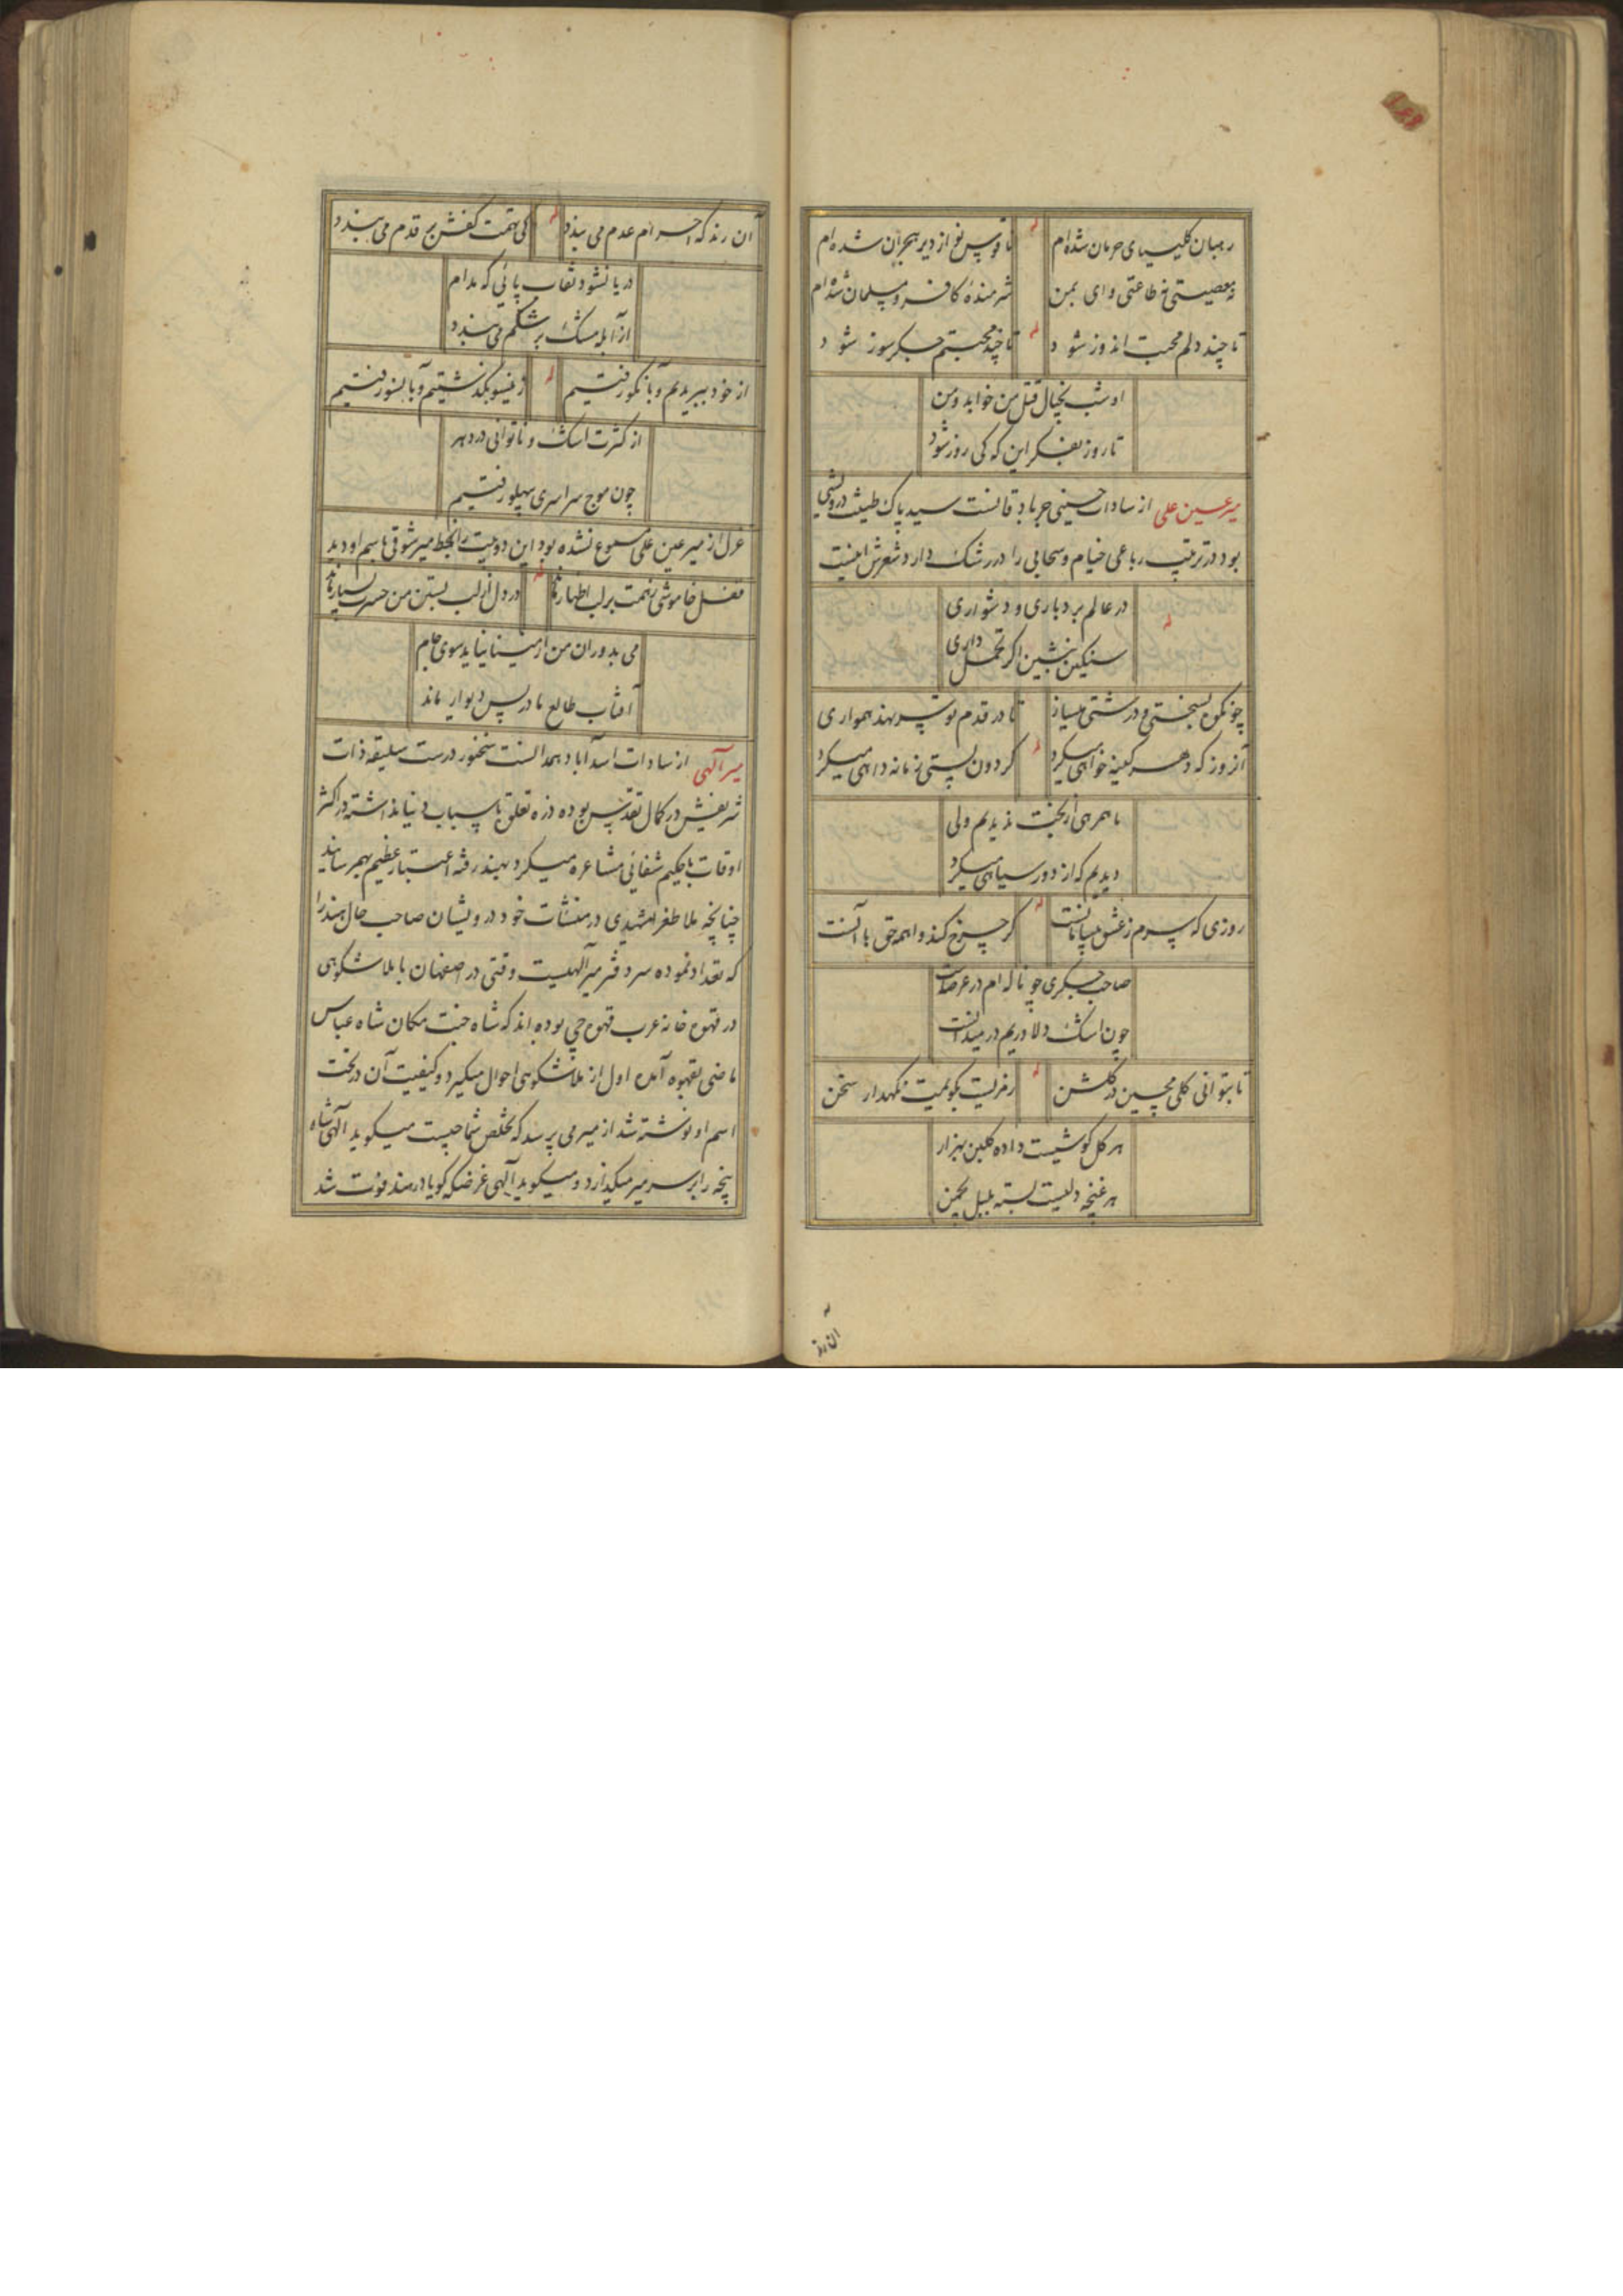 رهبان کلیسیای حرمان شده‌ام له ناقوس نواز دیر هجران شده‌ام
نه معصیتی نه طاعتی وای بمن شرمندهٔ کافر و مسلمان شده‌ام
تا چند دلم محبت اندوز شود له تا چند محبتم جگرسوز شود
او شب بخیال قتل من خوابد و من
تا روز بفکر این که کی روز شود
میر عین علی از سادات حسینی جربادقانست سید پاک طینت درویشی
بود در ترتیب رباعی خیام و سحابی را در رشک دارد شعرش اینست
در عالم بردباری و دشواری
له
سنگین بنشین اگر تحمل داری
چون کوه بسختی و درشتی میساز تا در قدم تو سر نهد همواری
آنروز که دهر کینه خواهی میکرد له گردون بستی زمانه داهی میکرد
ما همرهی از بخت ندیدیم ولی
دیدیم که از دور سیاهی میکرد
روزی که سرم ز عشق بیسامانست له گر چرخ کند واهمه حق با آنست
صاحب جگری چو ناله‌ام در عرصه است
چون اشک دلاوریم در میدانست
تا بتوانی گلی مچین در گلشن له رمزیست بگویمت نگهدار سخن
هر گل گوشیست داده گلبن بهزار
هر غنچه دلیست بسته بلبل بچمن
آن رند
آن رند که احرام عدم می بندد له کی تهمت کفش بر قدم می بندد
دریا نشود نقاب پائی که مدام
از آبله مشک بر شکم می بندد
از خود ببریدیم و بآنکو رفتیم له زینسو بگذشتیم و بآنسو رفتیم
از کثرت اشک و ناتوانی در دهر
چون موج سراسری بپهلو رفتیم
غزل از میر عین علی مسموع نشده بود این دو بیت را بخط میر شوقی باسم او دید
قفل خاموشی نه تهمت بر لب اظهار ماند له در دل از لب بستن من حسرت بسیار ماند
می بدوران من از مینا نیاید سوی جام
آفتاب طالع ما در پس دیوار ماند
میر آلهی از سادات اسدآباد همدانست سخنور درست سلیقه ذات
شریفش در کمال تقدس بوده ذره تعلق باسباب دنیا نداشته در اکثر
اوقات با حکیم شفائی مشاعره میکرد بهند رفته اعتبار عظیم بهمرسانید
چنانچه ملا طغرا مشهدی در منشات خود درویشان صاحب حال هند را
که تعداد نموده سردفتر میر آلهیست وقتی در اصفهان با ملا شکوهی
در قهوه خانه عرب قهوه‌چی بوده‌اند که شاه جنت مکان شاه عباس
ماضی بقهوه آمده اول از ملا شکوهی احوال میگیرد و کیفیت آن در تحت
اسم او نوشته شد از میر می پرسد که تخلص شما چیست میگوید آلهی شاه
پنجه را بر سر میر میگذارد و میگوید آلهی غرضکه گویا در هند فوت شد